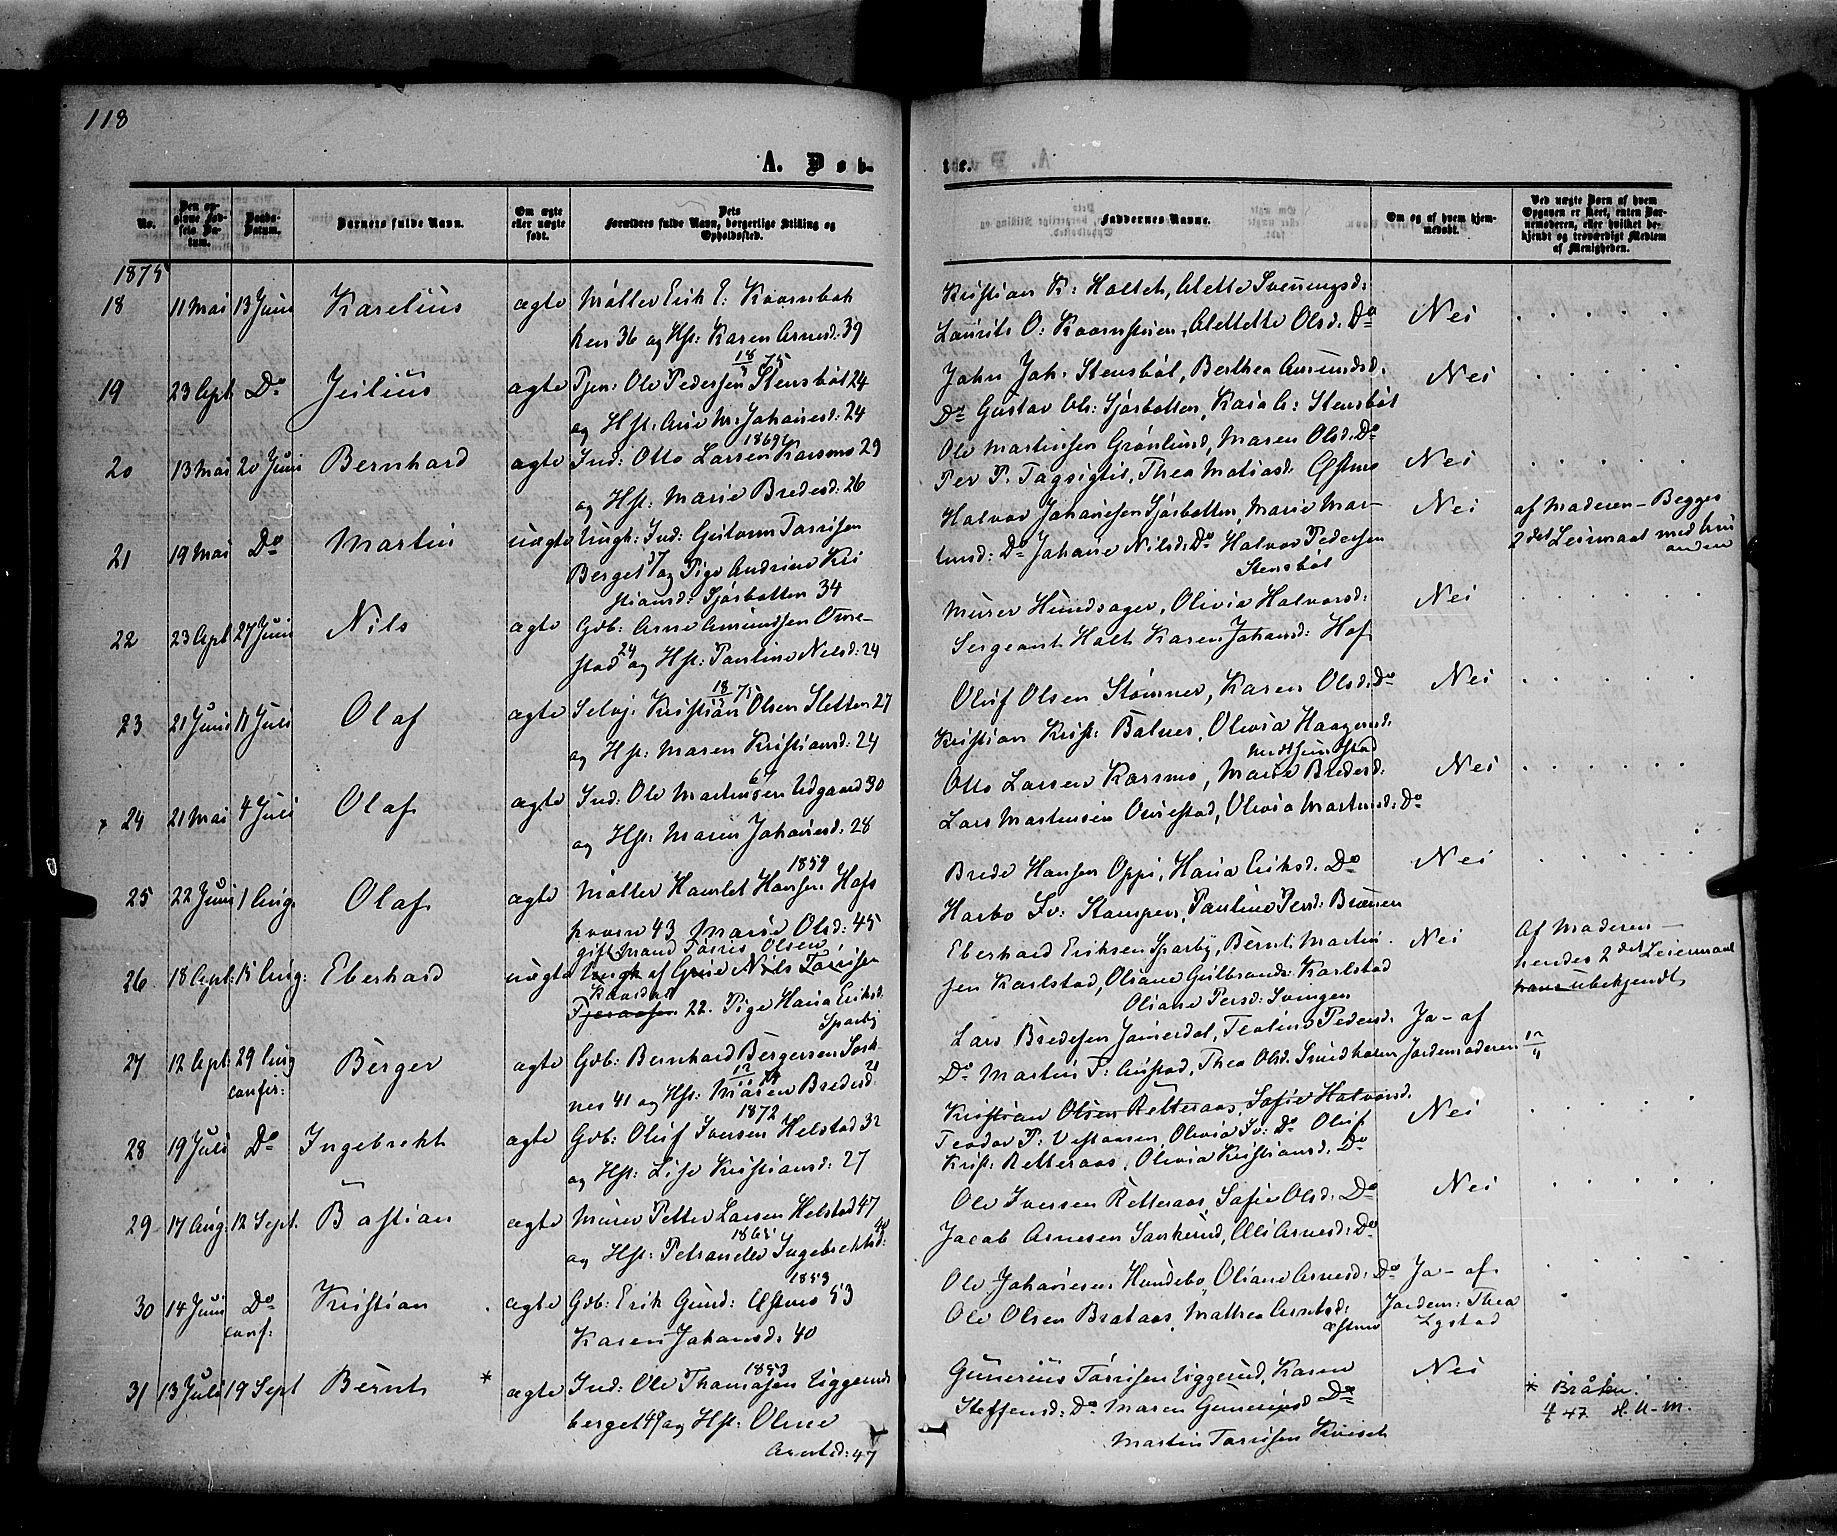 118
A. Døb-
ter.
No.
Den op-
givne Fød-
sels Da-
tum.
Daabs-
Datum.
Barnets fulde Navn.
Om ægte
eller uægte
født.
Dets
Forældres fulde Navn, borgerlige Stilling og
Opholdssted.
Faddernes Navne.
Om og af hvem hjem-
medøbt.
Ved uægte Børn af hvem
Opgaven er skeet, enten Bar-
nemoderen, eller hvilket be-
kjendt og troværdigt Medlem
af Menigheden.
1875
18 11 Mai 13 Juni Karelius ægte Møller Erik E: Kvernbak
ken 36 og Hst: Karen Arnesd: 39
Kristian K: Holtet, Alette Svenungsd:
Laurits O: Olsd: Do
Nei
19 23 Apl: Do Julius ægte Tjen: Ole Pedersen Stensbøl 24
18/75
og Hst: Ane M: Johanesd: 24
John Joh. Stensbøl, Berthea Amundsd:
Do Gustav Ol: Sjørbotten, Kaia A: Stensbøl
Nei
20 13 Mai 20 Juni Bernhard ægte Ind: Otto Larsen Karsmo 29
1869
og Hst: Marie Bredesd: 26
Ole Martinsen Grønlund, Maren Olsd: Do
Per P: Tagsigtil, Thea Matiasd: Østmo
Nei
21 19 Mai Do Martin uægte Ungk: Ind: Gulovm Torrisen
Berget 37 og Pige Andrine Kri
stiansd: Sjørbotten 34
Halvor Johanesen Sjørbotten, Marie Mar-
tinsd: Do Johane Nilsd: Do Halvor Pedersen
Stensbøl
Nei
af Moderen - Begges
2det Leiermaal med hin
anden
22 23 Apl: 27 Juni Nils ægte Gdb: Arne Amundsen Ovre-
stad 24 og Hst: Pauline Nilsd: 24
Murer Hundsager, Olivia Halvorsd:
Sergeant Holt Karen Johansd: Hof
Nei
23 21 Juni 11 Juli Olaf ægte Selvj: Kristian Olsen Sletten 27
18/75
og Hst: Maren Kristiansd: 24
Oluf Olsen Stømner, Karen Olsd: Do
Kristian Krist: Balnes, Olivia Haagensd:
Nordsundstad
Nei
24 21 Mai 4 Juli Olaf ægte Ind: Ole Martinsen Udgaard 30
67
og Hst: Maren Johanesd: 28
Otto Larsen Karsmo, Marie Bredesd:
Lars Martinsen Ovrestad, Olivia Martinsd: Do
Nei
25 22 Juni 1 Aug: Olaf ægte Møller Hamlet Hansen Hofs
1859
kvern 43 Marie Olsd: 45
Brede Hansen Oppi, Maria Eriksd: Do
Harbo Iv: Stampen, Pauline Persd: Brænen
Nei
26 18 Apl: 15 Aug: Eberhard uægte
gift Mand Torris Olsen
Ungk af Grue Nils Torrisen
Kaardal
22. Pige Maria Eriksd:
Sparby
Eberhard Eriksen Sparby, Bernt Martin
sen Karlstad, Oliane Gulbrandsd: Karlstad
Oliane Persd: Svingen
Nei
Af Moderen -
hendes 2det Leiermaal
hans ubekjendt
27 12 Apl: 29 Aug
confir: Berger ægte Gdb: Bernhard Bergersen Sork-
nes 41 og Hst: Maren Bredesd: 21
Lars Bredesen Jømerdal, Teoline Pedersd:
Do Martin P: Austad, Thea Olsd: Sundholen
Ja - af
Jordemoderen 12/4
28 19 Juli Do Ingebrekt ægte Gdb: Oluf Iversen Helstad 32
1872
og Hst: Lise Kristiansd: 27
Kristian Olsen Retteraas, Sofie Halvorsd:
Teodor P: Vestaasen, Olivia Iv: Do Oluf
Krist: Retteraas, Olivia Kristiansd: Do
Nei
29 17 Aug: 12 Sept. Bastian ægte Murer Petter Larsen Helstad 47
1865
og Hst: Petronele Ingebrektsd: 40
Ole Iversen Retteraas, Sofie Olsd: Do
Jacob Arnesen Sorkerud, Eli Arnesd: Do
Nei
30 14 Juni Do
conf: Kristian ægte Gdb: Erik Gund: Østmo 53
1853
Karen Johansd: 40
Ole Johanesen Hundebo, Oliane Arnesd: Do
Ole Olsen Brataas, Mathea Arntsd:
Østmo
Ja - af
Jordem: Thea
Lystad
31 13 Juli 19 Sept Bernt * ægte Ind: Ole Thomasen Uggerud
1853
berget 49 og Hst: Oline
Arntsd: 47
Gunerius Torrisen Uggerud, Karen
Steffensd: Do Maren Guneriusd Do
Martin Torrisen Kviset
Nei
* Bråten.
4/6 47. H. U-m.